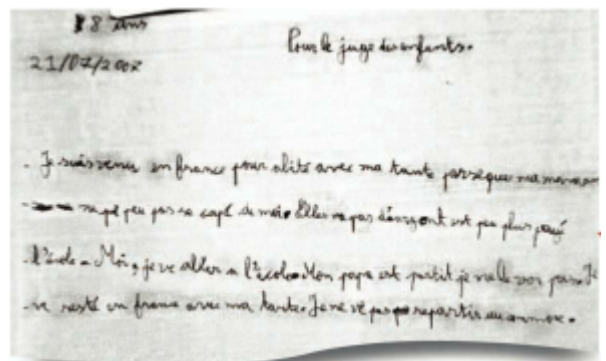 8 ans
Pour le juge des enfants.
21/07/2002
. Je suis venu en france pour abité avec ma tante parseque ma maman
ne pe peu pas se capé de moi. Elle na pas d'argent et peu plus payé
l'école. Moi, je ve aller a l'école. Mon papa est partit je ne le vor pas. Je
ve resté en france avec ma tante. Je ne vé pas repartir au